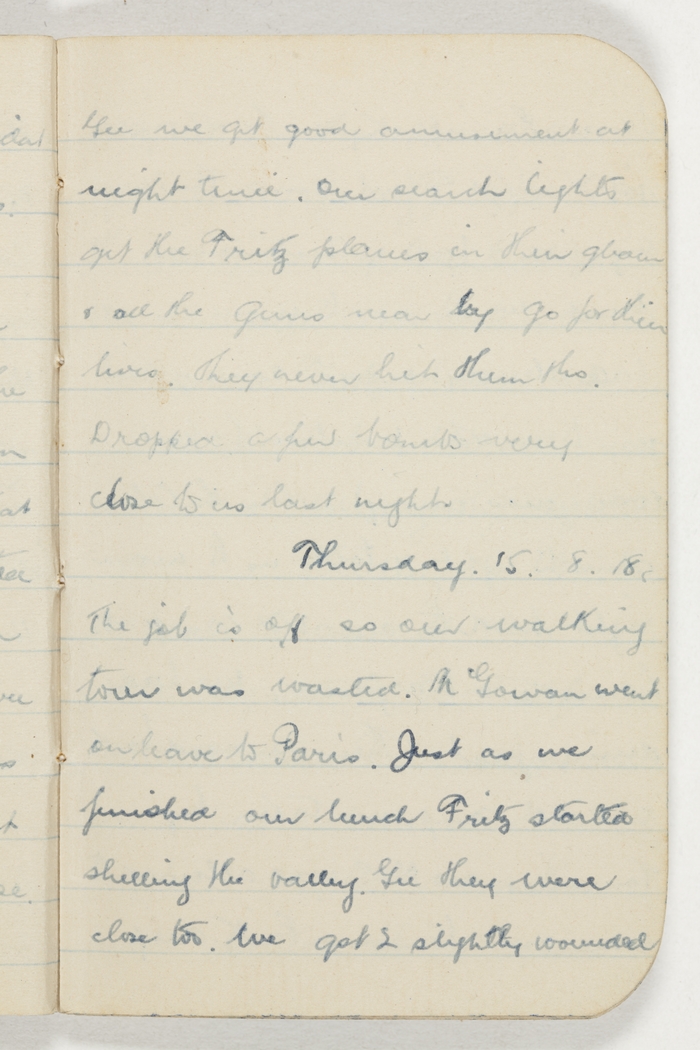 Gee we get good amusement at
night time. Our search lights
get the Fritz planes in their gleam
& all the Guns near by go for their
lives. They never hit them tho.
Dropped a few bombs very
close to us last night
Thursday. 15. 8. 18.
The job is off so our walking
tour was wasted. McGowan went
on leave to Paris. Just as we
finished our lunch Fritz started
shelling the valley. Gee they were
close too. We got 2 slightly wounded